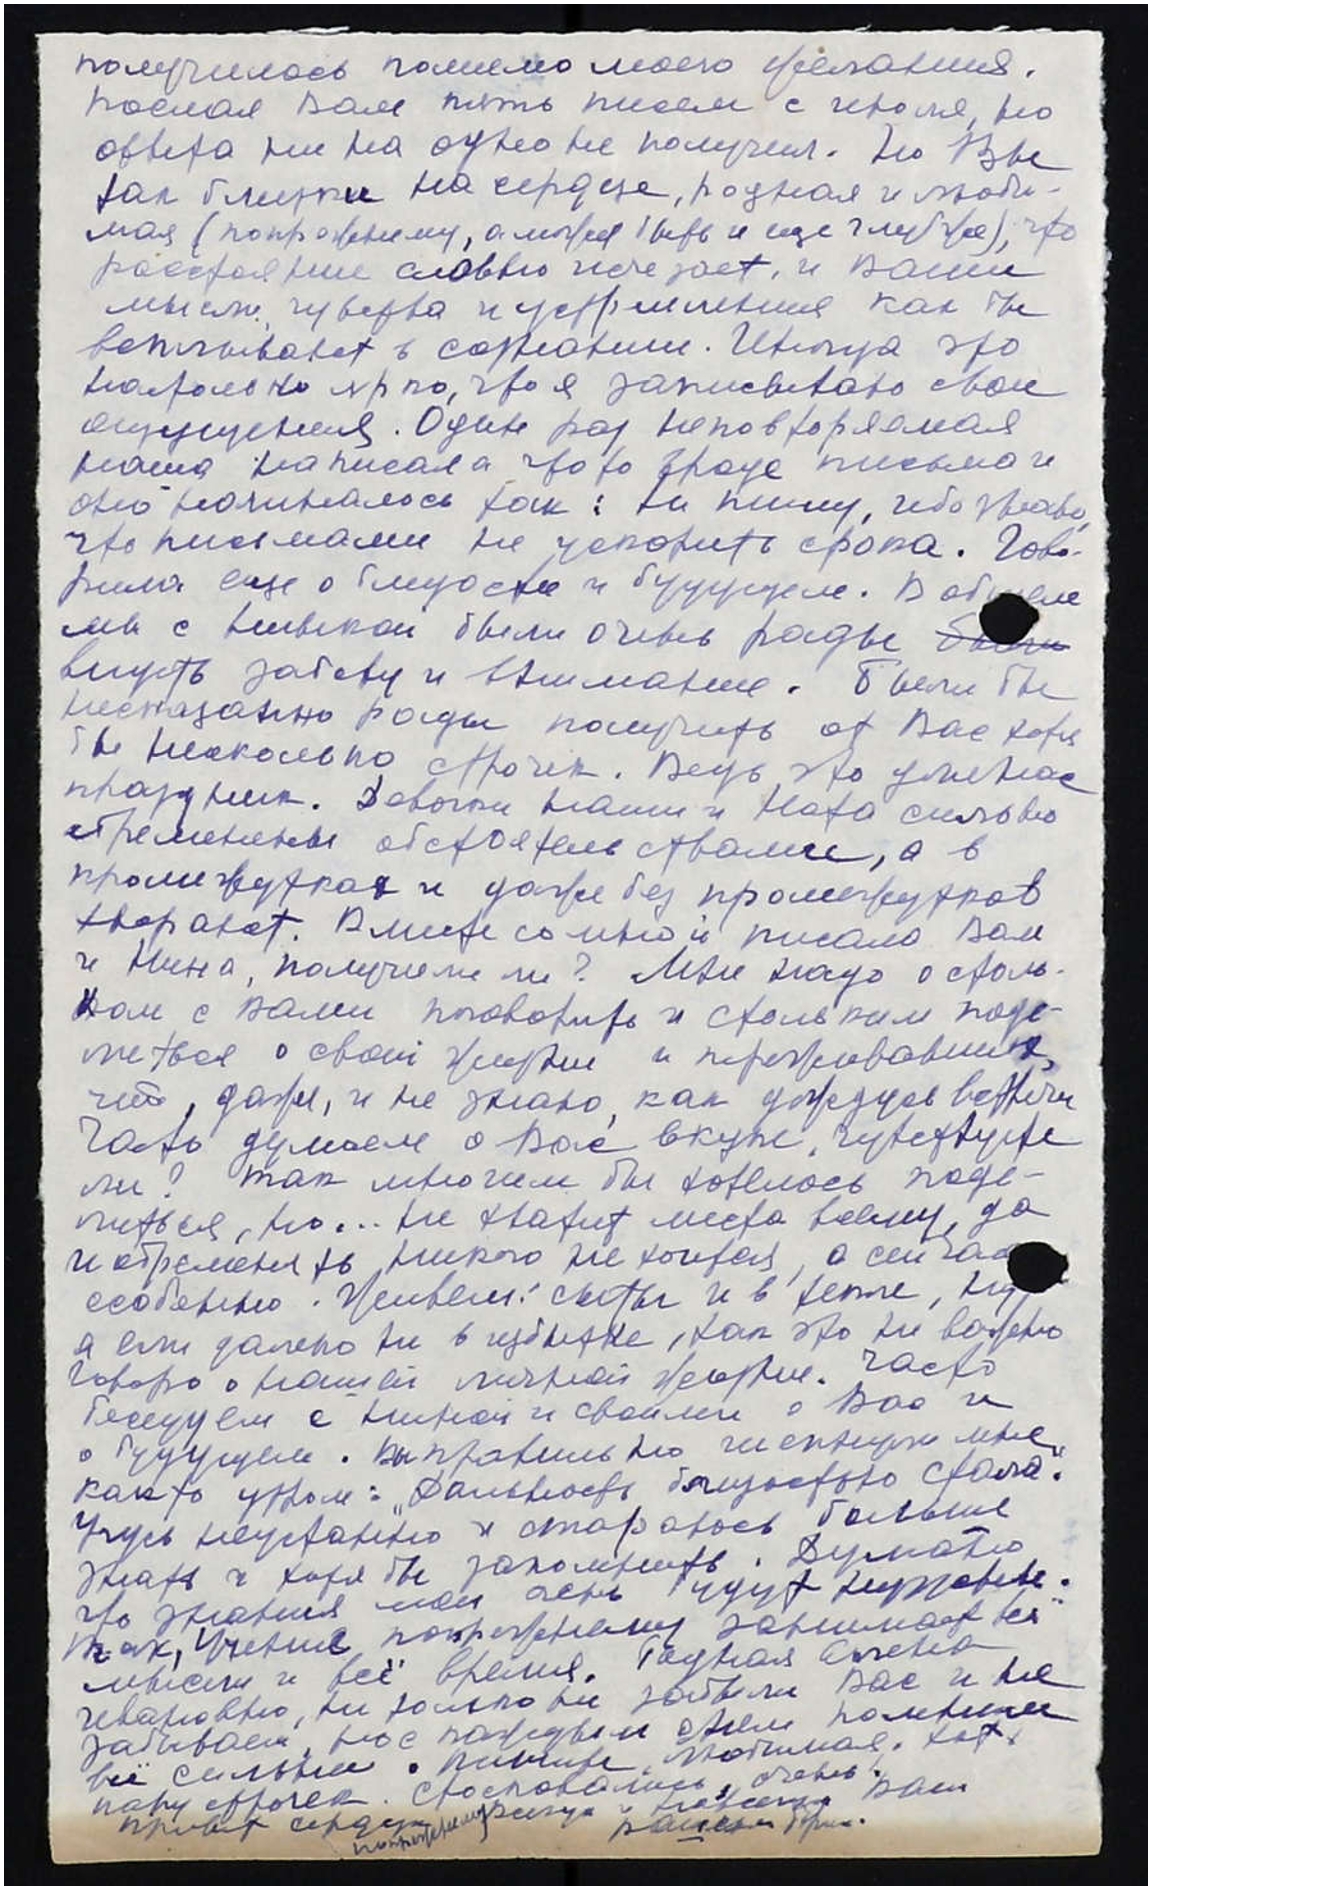 получилось помимо моего желания.
Послал Вам пять писем с июля, но
ответа ни на одно не получил. Но Вы
так близки на сердце, родная и люби-
мая (попрежнему, а может быть и еще глубже), что
расстояние словно исчезает, и Ваши
мысли, чувства и устремления как бы
всплывают в сознании. Иногда это
настолько ярко, что я записываю свои
ощущения. Один раз неповторяемая
наша написала что то вроде письма и
оно начиналось так: не пишу, ибо знаю,
что письмами не ускорить срока. Гово-
рила еще о близости и будущем. В общем
мы с были очень рады были
внуть заботу и внимание. Были бы
несказанно рады получить от Вас хотя
бы несколько строчек. Ведь это уже нас
праздник. Девочки наши и Ната сильно
обременены обстоятельствами, а в
промежутках и даже без промежутков
хворают. Вместе со мной писала Вам
и Нина, получили ли? Мне надо о столь-
ком с Вами поговорить и стольким поде-
литься о своей жизни и переживаниях,
что, даже, и не знаю, как дождусь встречи
Часто думаем о Вас вкупе, чувствуете
ли? Так многим бы хотелось поде-
литься, но... не хватит места всему, да
и обременять никого не хочется, а сейчас
особенно. Живем: сыты и в тепле, ну
а если далеко не в избытке, так это не важно
Говорю о нашей личной жизни. Часто
беседуем с Ниной и своими о Вас и
о будущем. Вы правильно мне
как то утром: „Дальность близостью стала".
Учусь неустанно и стараюсь больше
знать и хотя бы запомнить. Думаю
что знания мои очень будут нужны.
Так, Учение попрежнему занимает все
мысли и всё время. Родная Елена
Ивановна, не только не забыли Вас и не
забываем, но с каждым днем помним
всё сильнее. Пишите, любимая. Хотя
пару строчек. Стосковались, очень.
Привет сердца всегда и навсегда Ваш
попрежнему Ваш Борис.